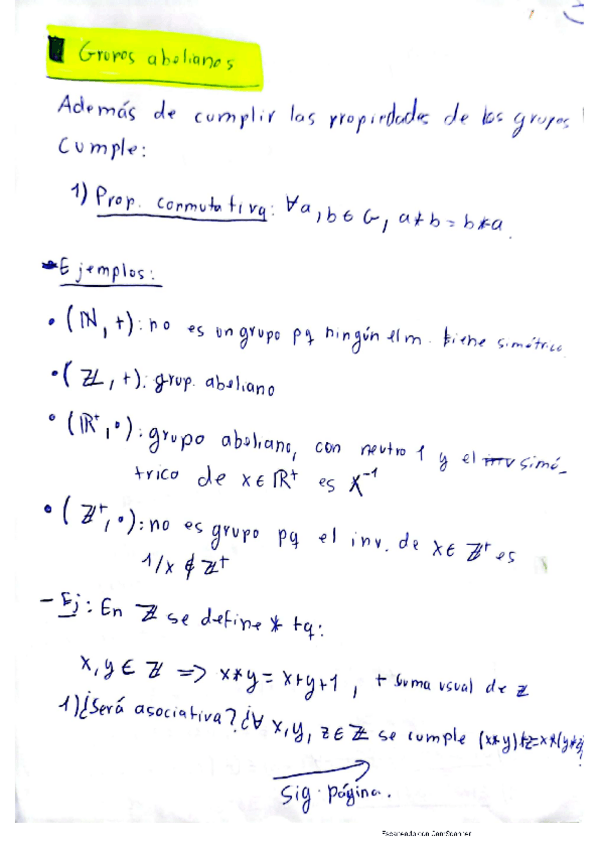 Grupos abelianos
Además de cumplir las propiedades de los grupos
cumple:
1) Prop. conmutativa: ∀a, b ∈ G, a*b = b*a.
Ejemplos:
• (ℕ, +): no es un grupo pq ningún elm. tiene simétrico
• (ℤ, +): grup. abeliano
• (ℝ⁺, •): grupo abeliano, con neutro 1 y el inv simé-
trico de x ∈ ℝ⁺ es x⁻¹
• (ℤ⁺, •): no es grupo pq el inv. de x ∈ ℤ⁺ es
1/x ∉ ℤ⁺
- Ej: En ℤ se define * tq:
x, y ∈ ℤ => x*y = x+y+1, + suma usual de ℤ
1) ¿Será asociativa? ¿∀ x, y, z ∈ ℤ se cumple (x*y)*z=x*(y*z)
Sig. página.
Escaneado con CamScanner